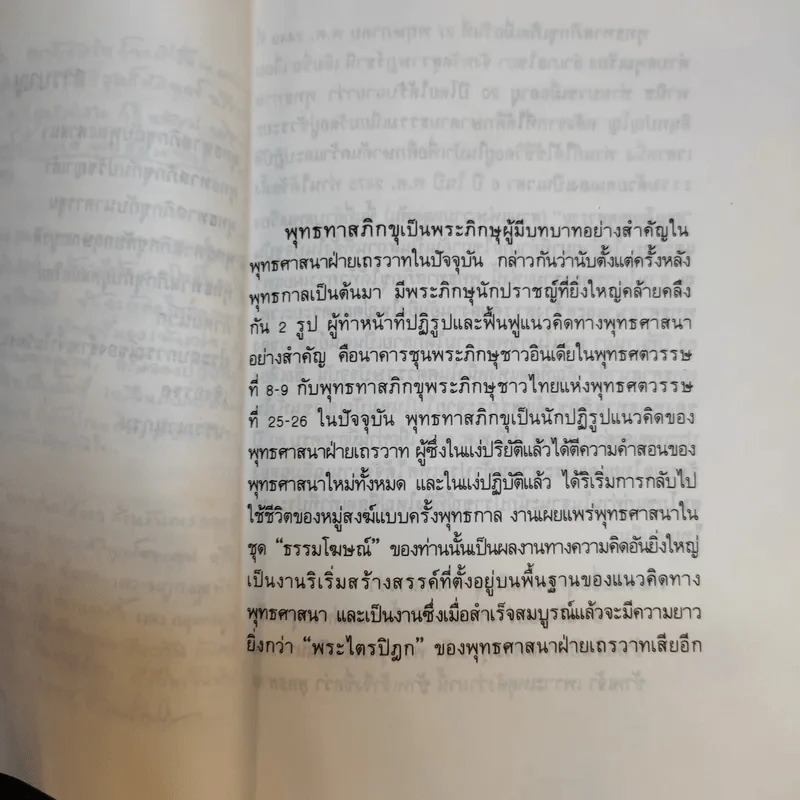 พุทธทาสภิกขุเป็นพระภิกษุผู้มีบทบาทอย่างสำคัญใน
พุทธศาสนาฝ่ายเถรวาทในปัจจุบัน กล่าวกันว่านับตั้งแต่ครั้งหลัง
พุทธกาลเป็นต้นมา มีพระภิกษุนักปราชญ์ที่ยิ่งใหญ่คล้ายคลึง
กัน 2 รูป ผู้ทำหน้าที่ปฏิรูปและฟื้นฟูแนวคิดทางพุทธศาสนา
อย่างสำคัญ คือนาคารชุนพระภิกษุชาวอินเดียในพุทธศตวรรษ
ที่ 8-9 กับพุทธทาสภิกขุพระภิกษุชาวไทยแห่งพุทธศตวรรษ
ที่ 25-26 ในปัจจุบัน พุทธทาสภิกขุเป็นนักปฏิรูปแนวคิดของ
พุทธศาสนาฝ่ายเถรวาท ผู้ซึ่งในแง่ปริยัติแล้วได้ตีความคำสอนของ
พุทธศาสนาใหม่ทั้งหมด และในแง่ปฏิบัติแล้ว ได้ริเริ่มการกลับไป
ใช้ชีวิตของหมู่สงฆ์แบบครั้งพุทธกาล งานเผยแพร่พุทธศาสนาใน
ชุด “ธรรมโฆษณ์” ของท่านนั้นเป็นผลงานทางความคิดอันยิ่งใหญ่
เป็นงานริเริ่มสร้างสรรค์ที่ตั้งอยู่บนพื้นฐานของแนวคิดทาง
พุทธศาสนา และเป็นงานซึ่งเมื่อสำเร็จสมบูรณ์แล้วจะมีความยาว
ยิ่งกว่า “พระไตรปิฎก” ของพุทธศาสนาฝ่ายเถรวาทเสียอีก